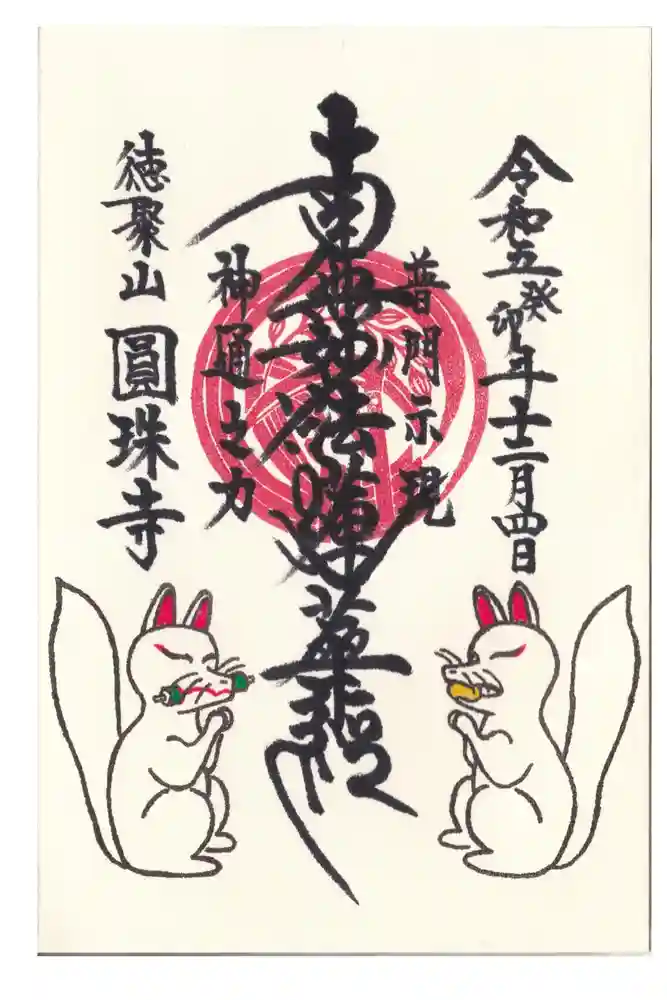 令和五癸卯年十二月四日
普門示現
南無妙法蓮華経
神通之力
徳聚山 圓珠寺